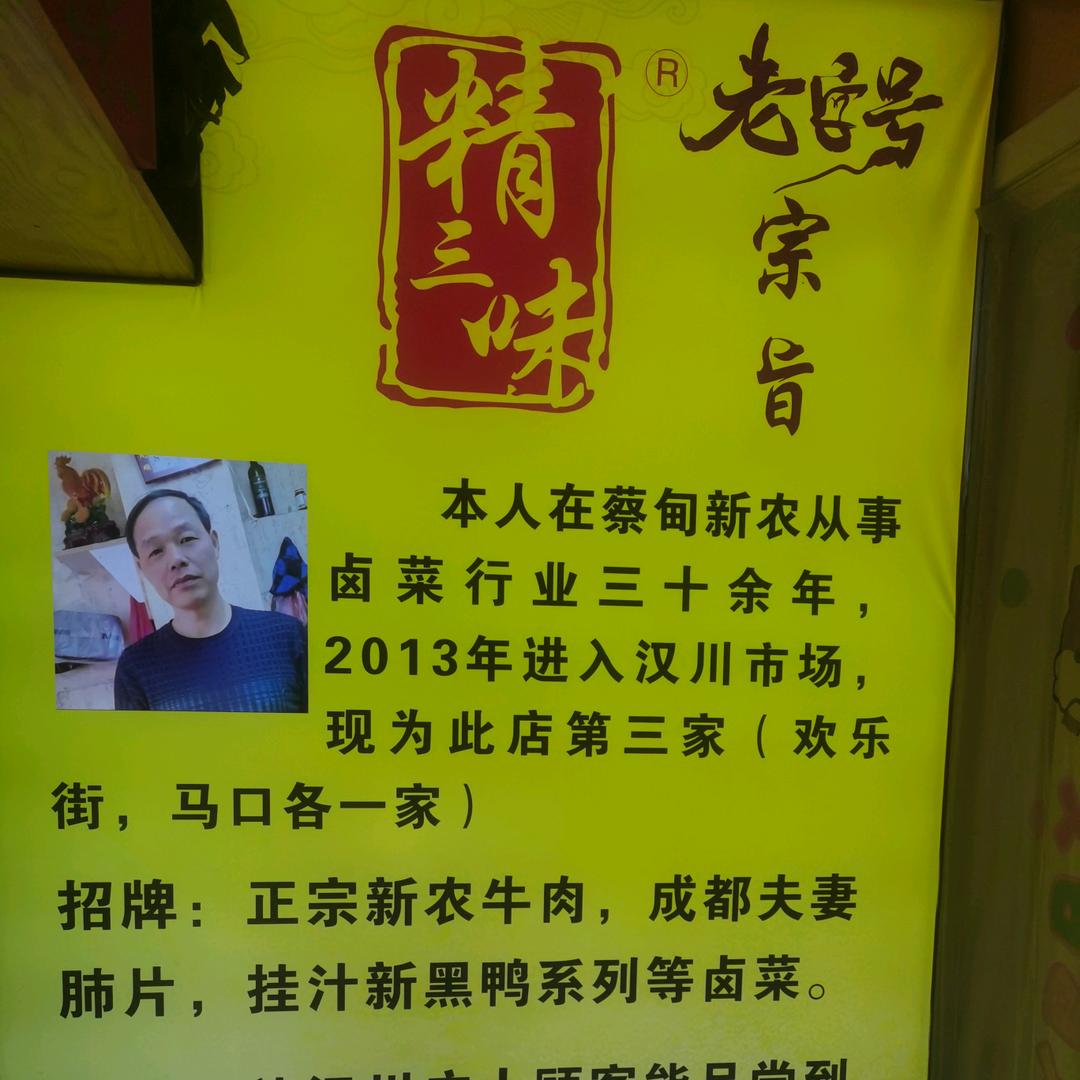 精三味
®
老字号
宗旨
本人在蔡甸新农从事
卤菜行业三十余年，
2013年进入汉川市场，
现为此店第三家（欢乐
街，马口各一家）
招牌：正宗新农牛肉，成都夫妻
肺片，挂汁新黑鸭系列等卤菜。